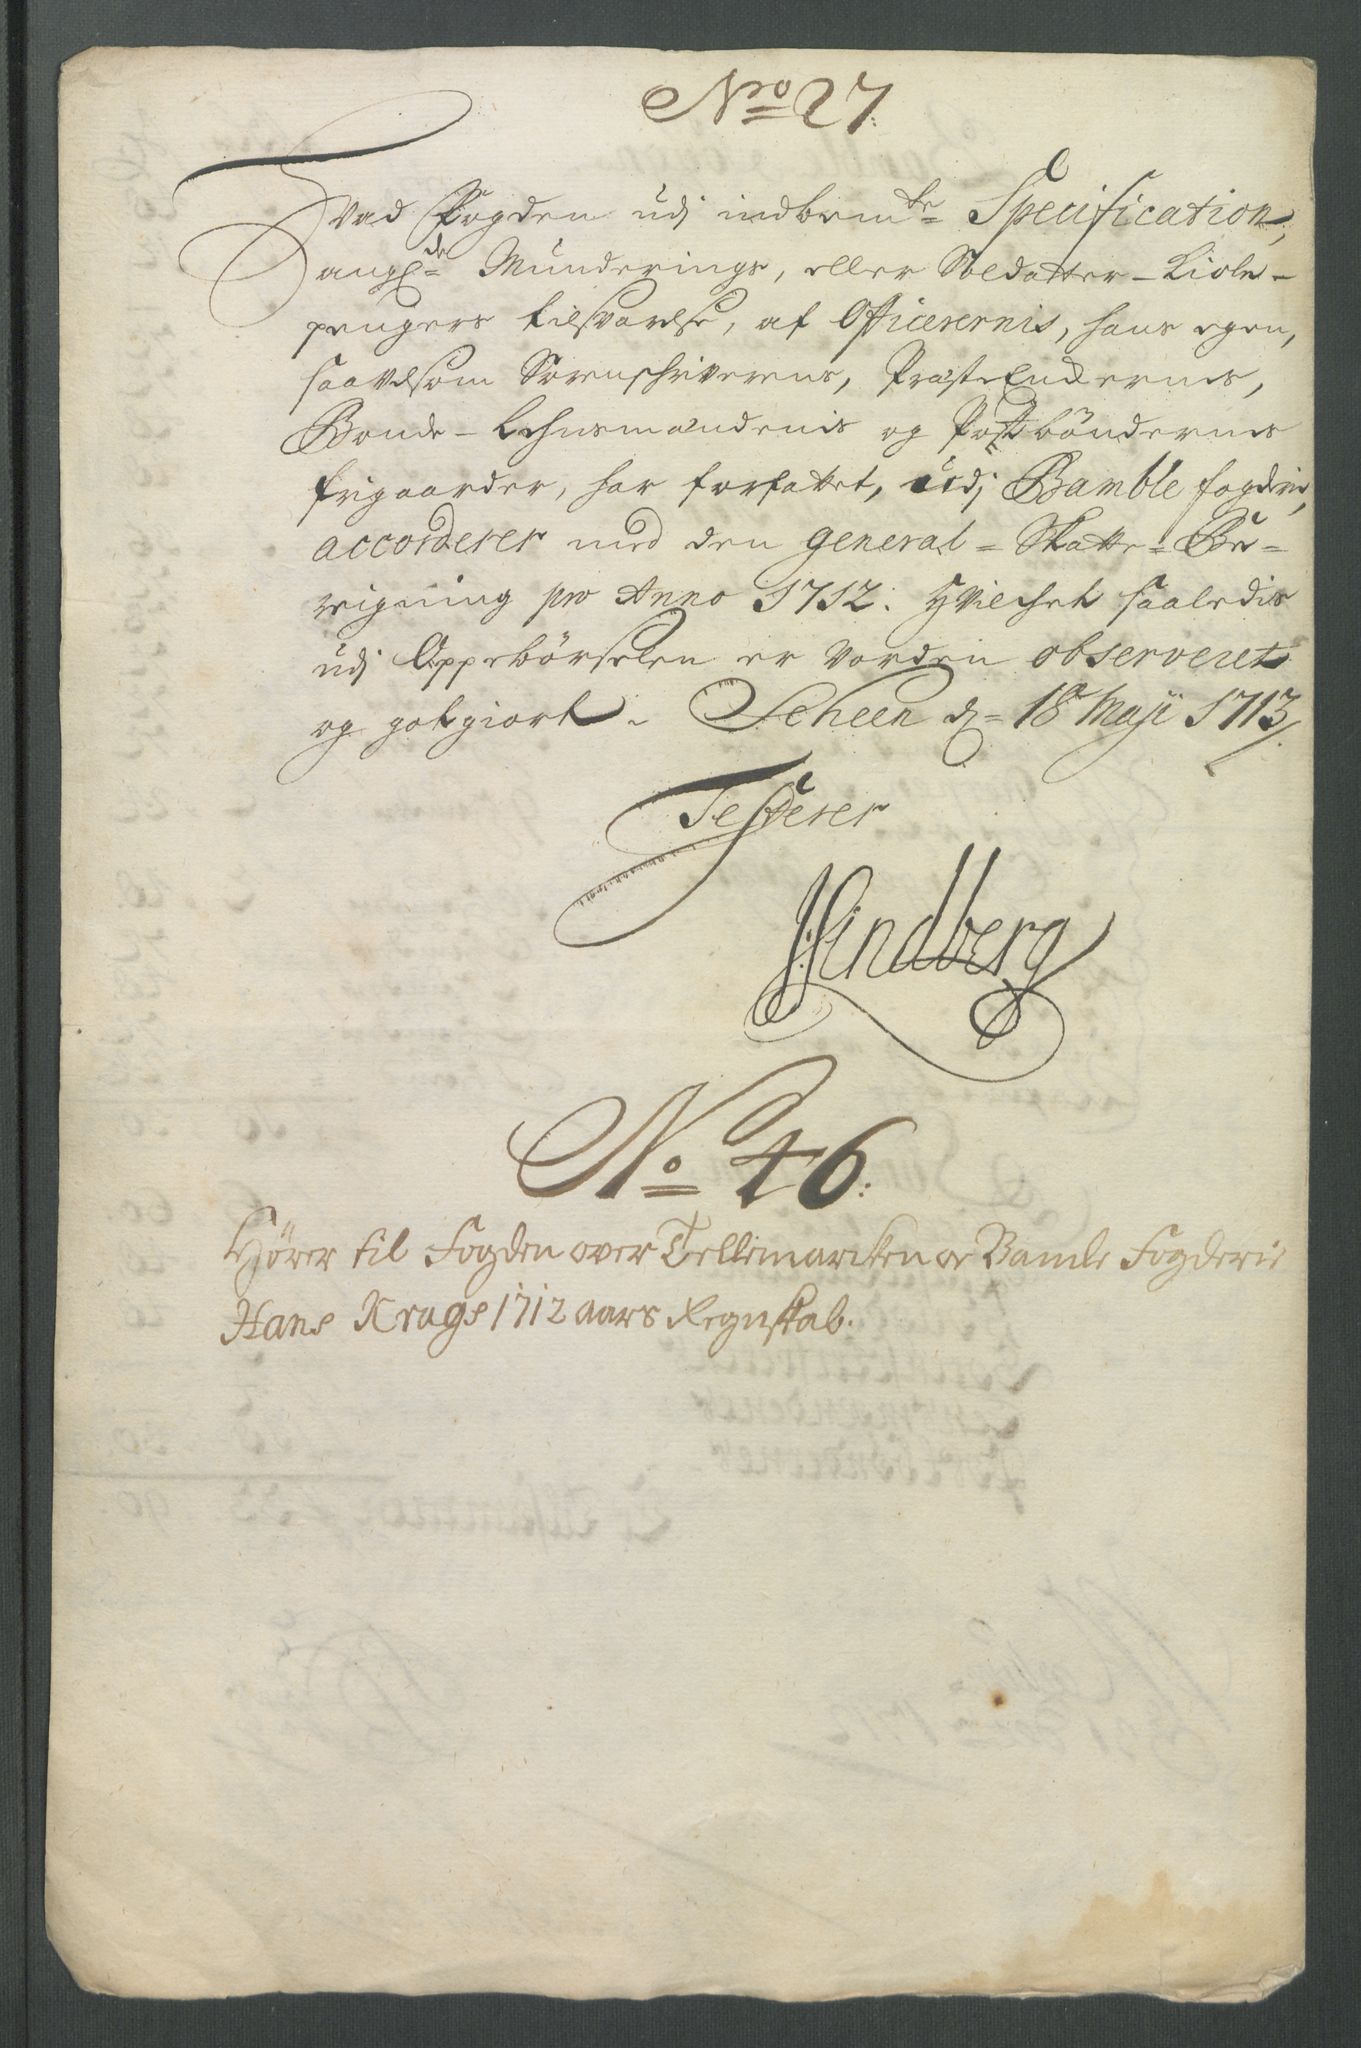 No 27.
Hvad Fogden udj indbemte Specification,
angl:de Munderings, eller Soldatter-Kiole-
pengers tilsvarelse, af Officerernis, hans egen,
saavelsom Sorenschriverens, Præste Enckernes,
Bonde-Lehnsmændenis og Postbøndernes
frigaarder, har forfattet, udj Bamble fogderie,
accorderer med den general-Skatte-Be-
reigning pro Anno 1712. Hvilchet saaledis
udj Oppebörselen er vorden observeret
og gotgiort. Scheen d= 18 Maji 1713.
Testerer
HLindberg
No 46:
Hører til Fogden over Tellemarcken oc Bamle Fogderie
Hans Krags 1712 aars Regnskab.